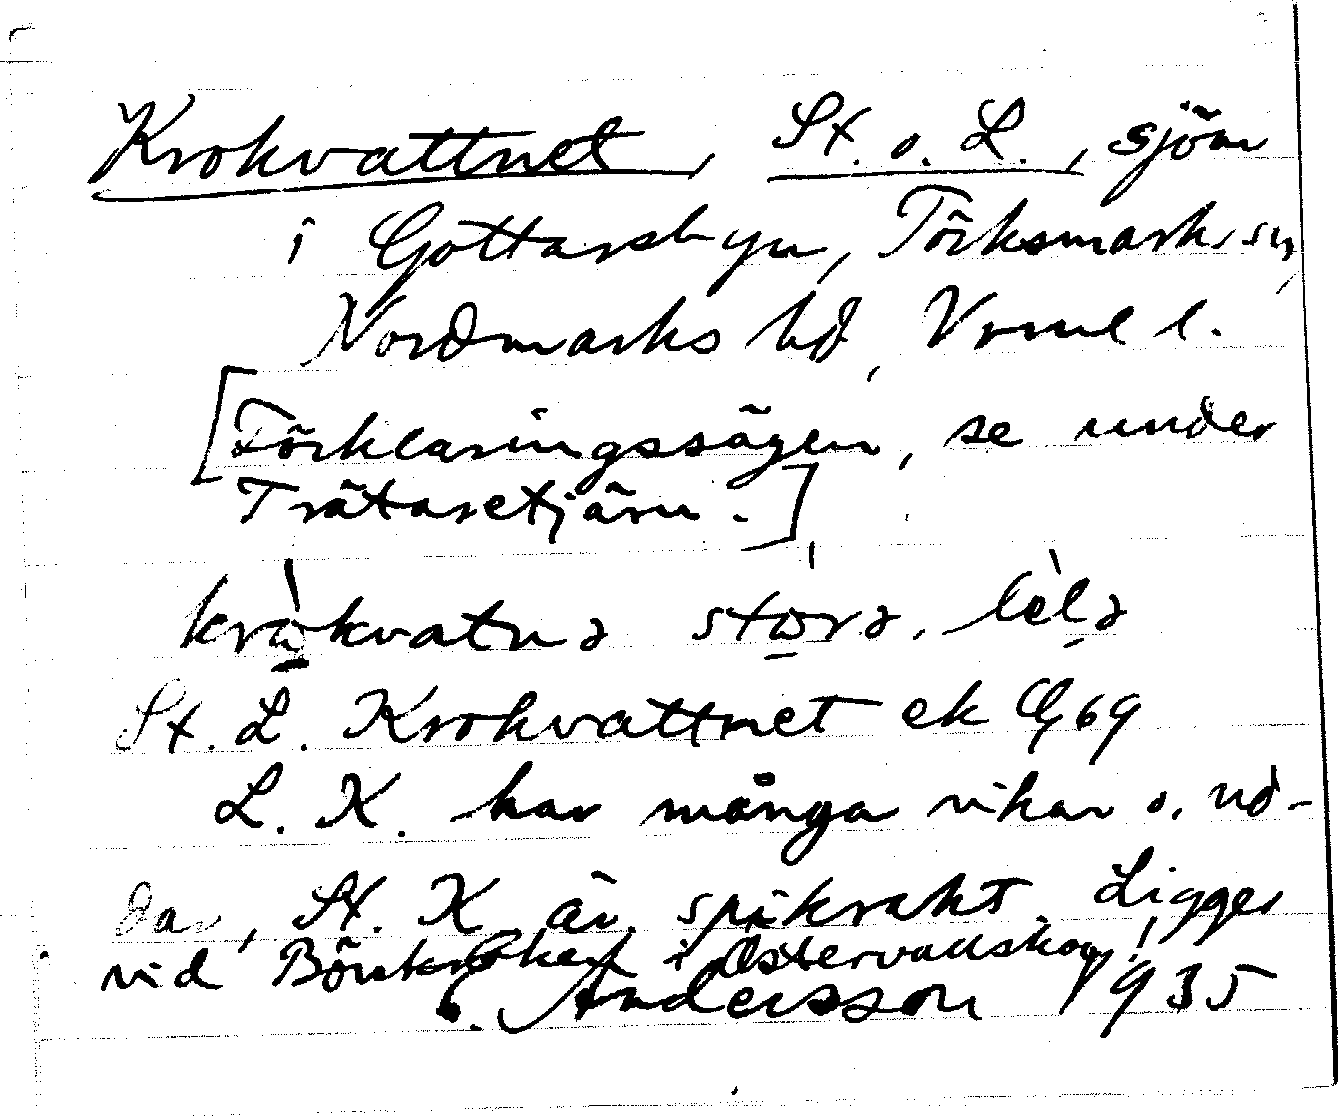 Krokvattnet, St. o. L., sjöar
i Gottarsbyn, Töcksmarks sn,
Nordmarks hd, Vrml l.
[Förklaringssägen, se under
Trätaretjärn.]
kråkvatnə störə, lelə
St. L. Krokvattnet ek G69
L. K. har många vikar o. ud-
dar, St. K är spikrakt. Ligger
vid i Östervallskog!
G. Andersson 1935